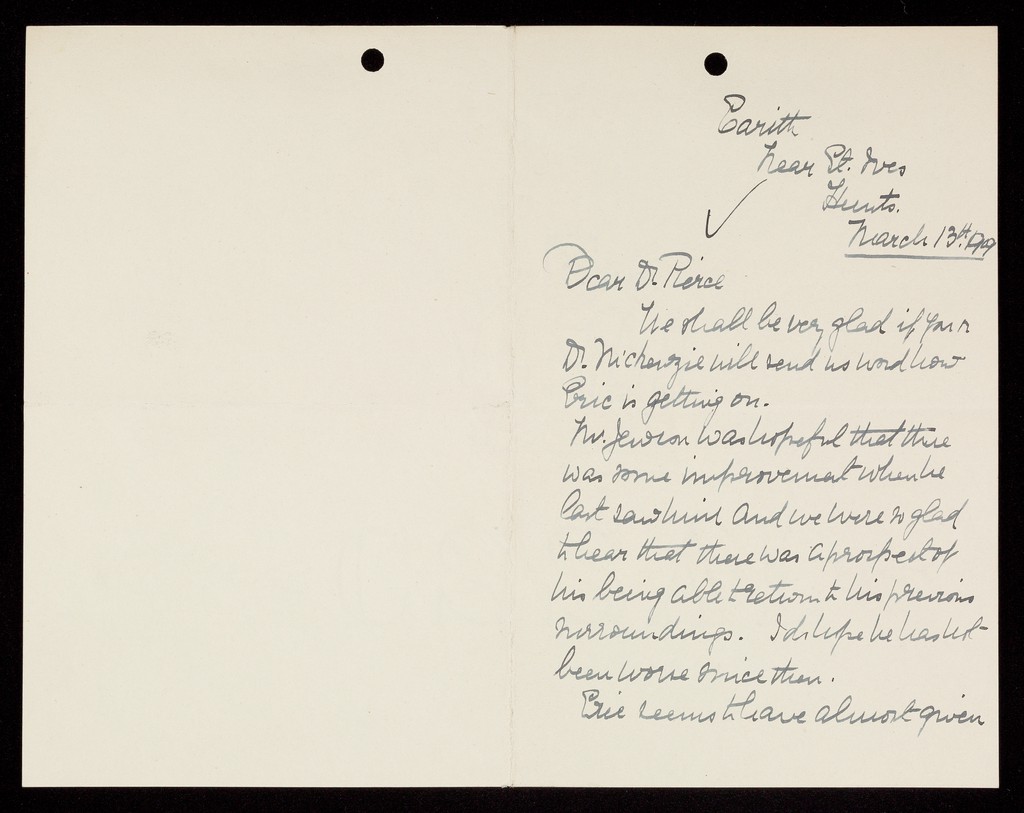 Earith
Near St. Ives
Hunts.
March 13th. 1919
Dear Dr. Pierce
We shall be very glad if you or
Dr. McKenzie will send us word how
Eric is getting on.
Mr. Jewson was hopeful that there
was some improvement when he
last saw him and we were so glad
to hear that there was a prospect of
his being able to return to his previous
surroundings. I do hope he has not
been worse since then.
Eric seems to have almost given